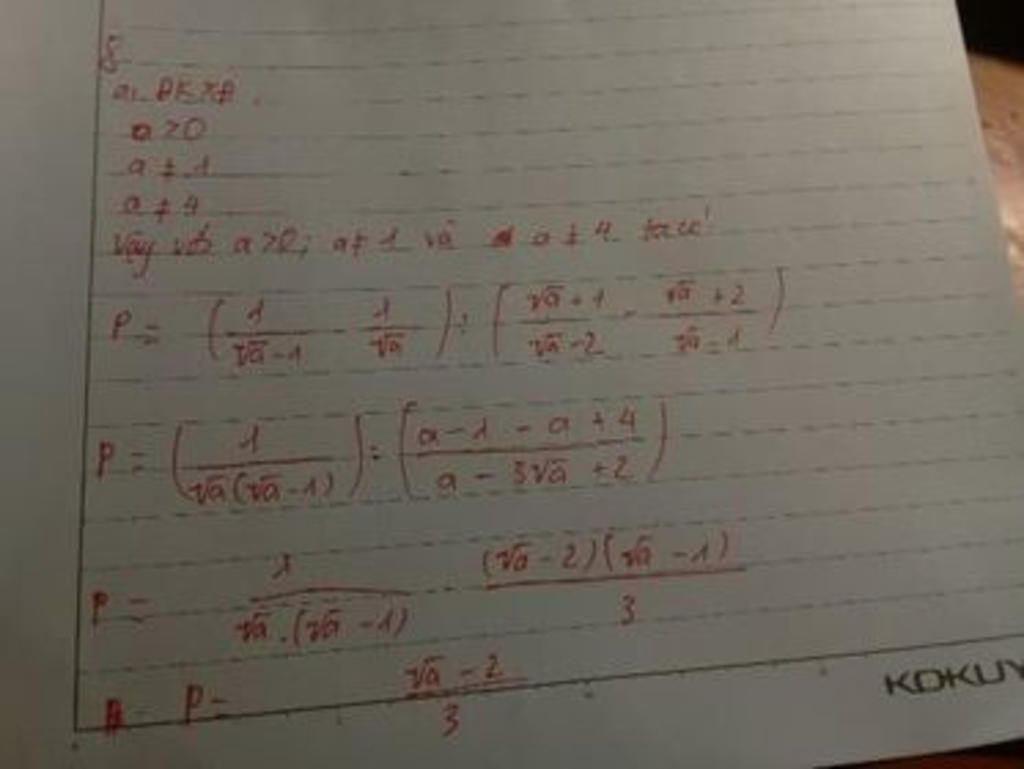 8.
a, ĐKXĐ.
a > 0
a ≠ 1
a ≠ 4
Vậy với a > 0; a ≠ 1 và a ≠ 4 ta có
P = (1/(√a - 1) - 1/√a) : ((√a + 1)/(√a - 2) - (√a + 2)/(√a - 1))
P = (1/(√a(√a - 1))) : ((a - 1 - a + 4)/(a - 3√a + 2))
P = 1/(√a.(√a - 1)) . ((√a - 2)(√a - 1))/3
P = (√a - 2)/3
KOKUY